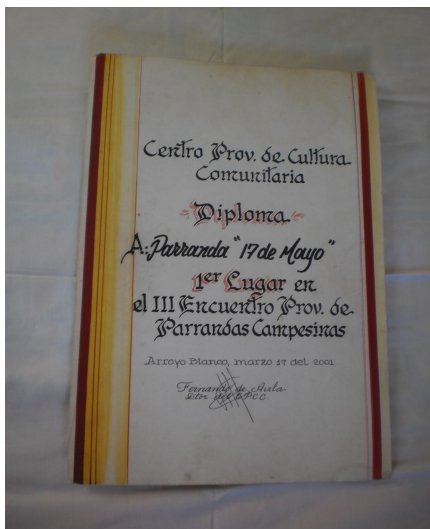 Centro Prov. de Cultura
Comunitaria
Diploma
A: Parranda "17 de Mayo"
1er Lugar en
el III Encuentro Prov. de
Parrandas Campesinas
Arroyo Blanco, marzo 17 del 2001
Fernando de Avila
Dtor del CPCC